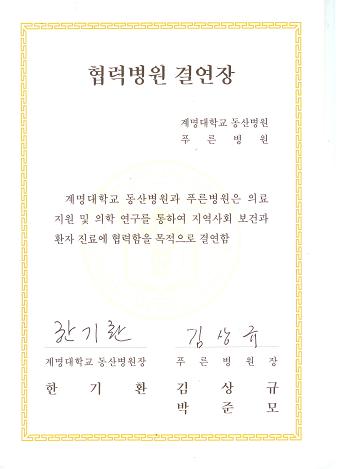 협력병원 결연장
계명대학교 동산병원
푸 른 병 원
계명대학교 동산병원과 푸른병원은 의료
지원 및 의학 연구를 통하여 지역사회 보건과
환자 진료에 협력함을 목적으로 결연함
한기환 김상규
계명대학교 동산병원장 푸 른 병 원 장
한 기 환 김 상 규
박 준 모